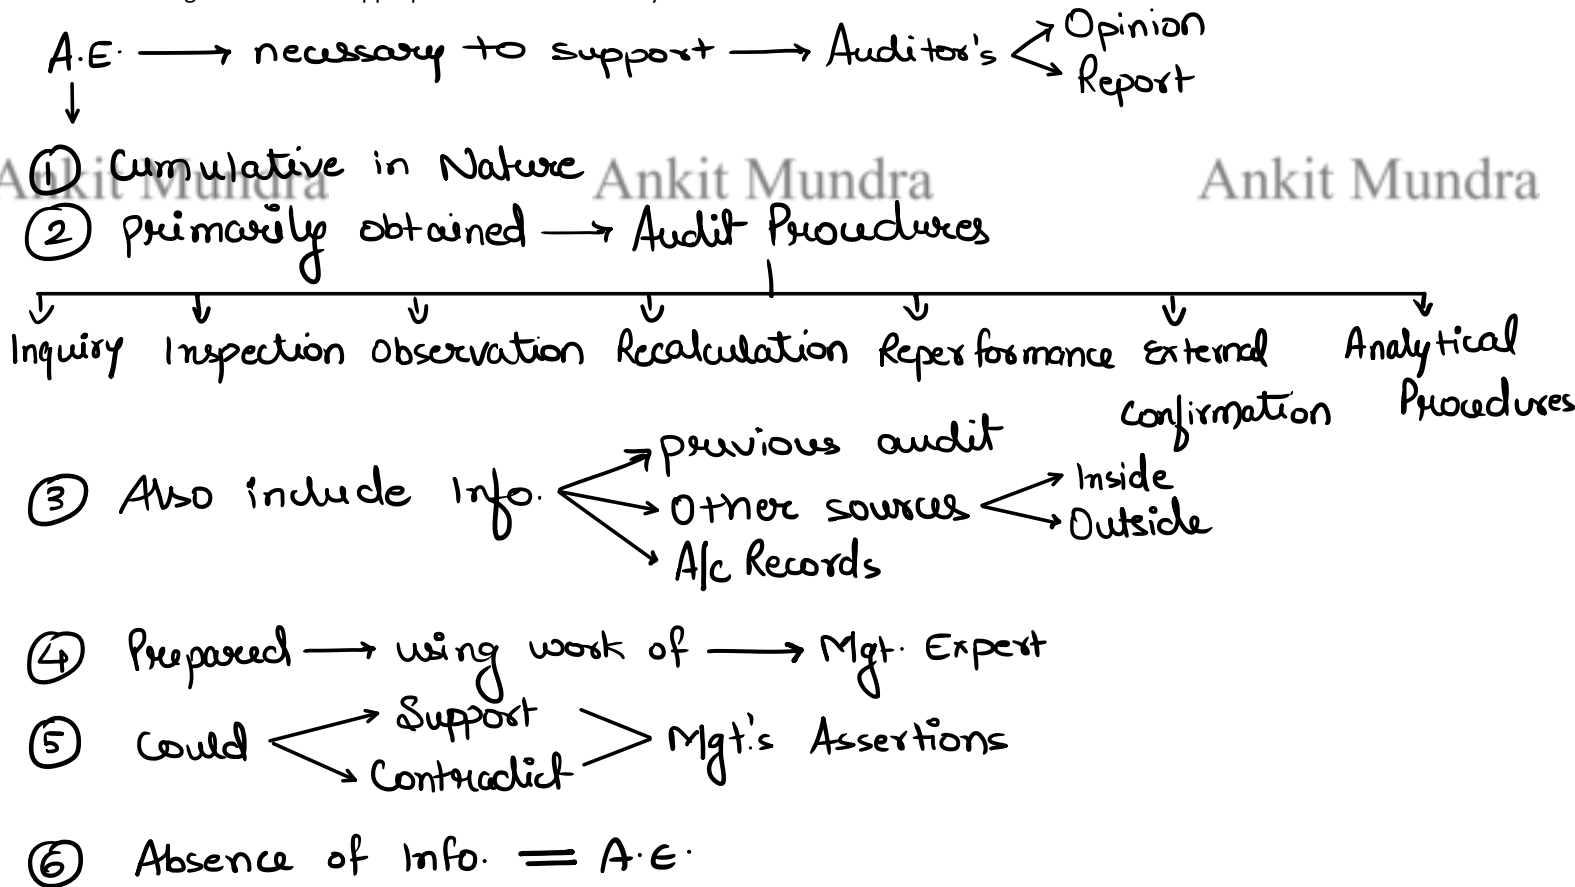 A.E. → necessary to support → Auditor's Opinion Report
① Cumulative in Nature
Ankit Mundra Ankit Mundra Ankit Mundra
② primarily obtained → Audit Procedures
Inquiry Inspection Observation Recalculation Reperformance External Confirmation Analytical Procedures
③ Also include Info. previous audit
Other sources Inside Outside
A/c Records
④ Prepared → using work of → Mgt. Expert
⑤ Could Support Contradict Mgt.'s Assertions
⑥ Absence of Info. = A.E.